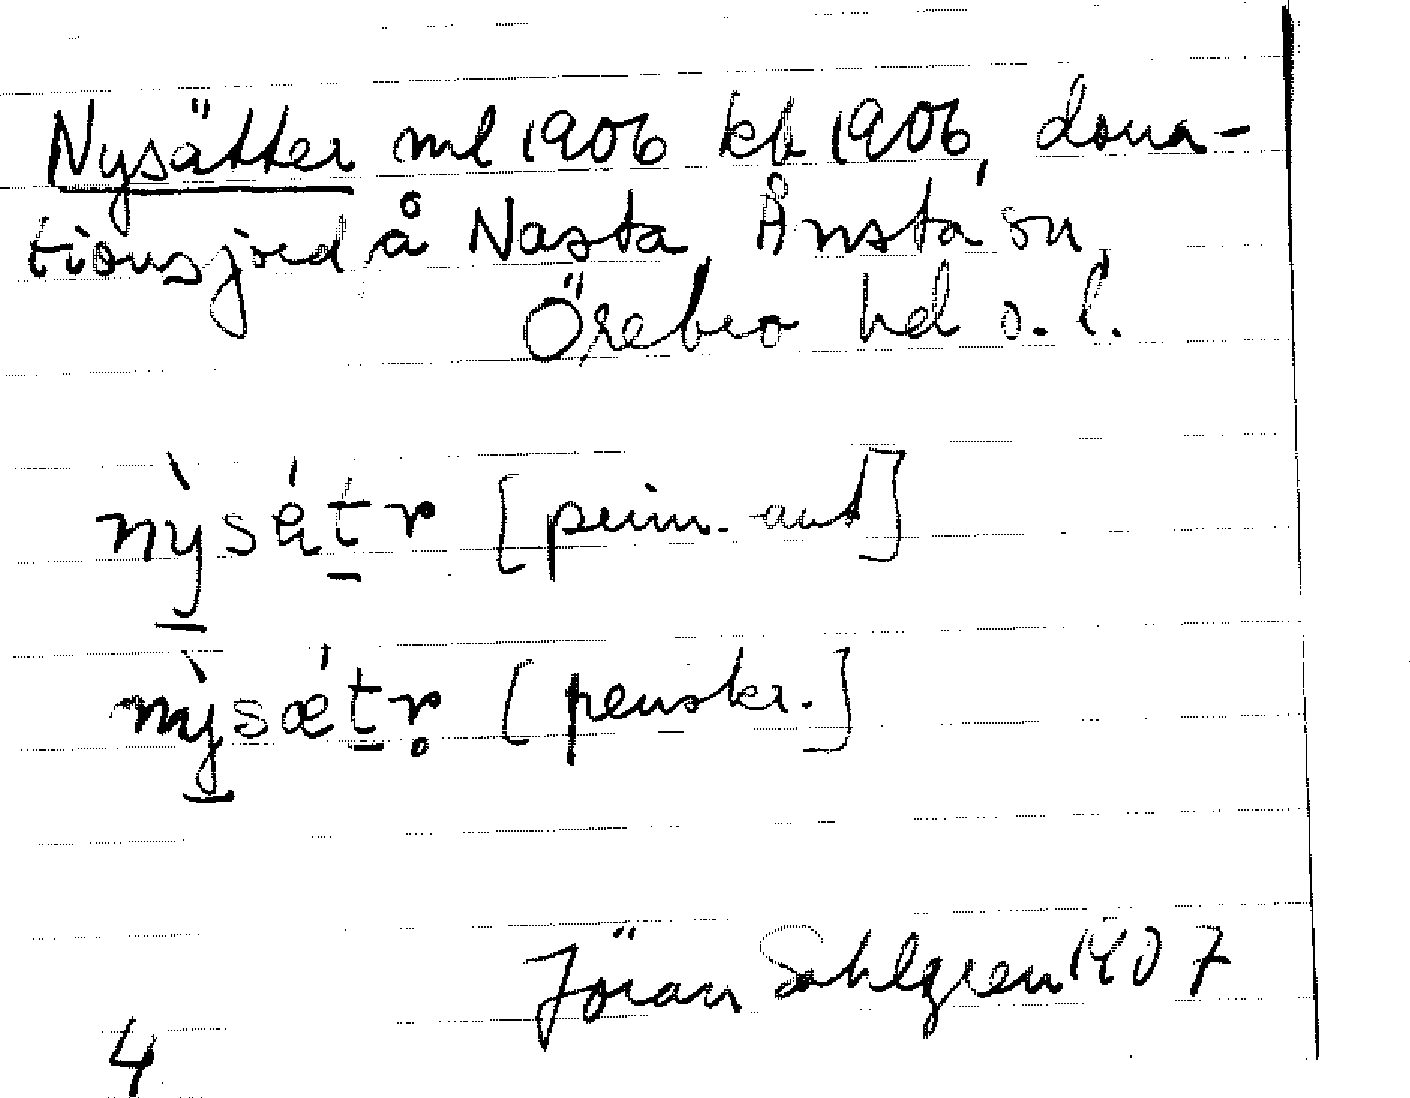 Nysätter ml 1906 kb 1906, dona-
tionsjord å Nasta, Ånsta sn,
Örebro hd o. l.
nỳsę́t̲r [prim. ant]
nỳsǽt̲r̥ [renskr.]
Jöran Sahlgren 1907
4